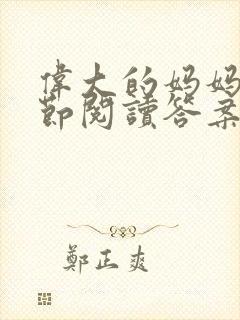 偉大的妈妈
節閱讀答案
鄭正爽